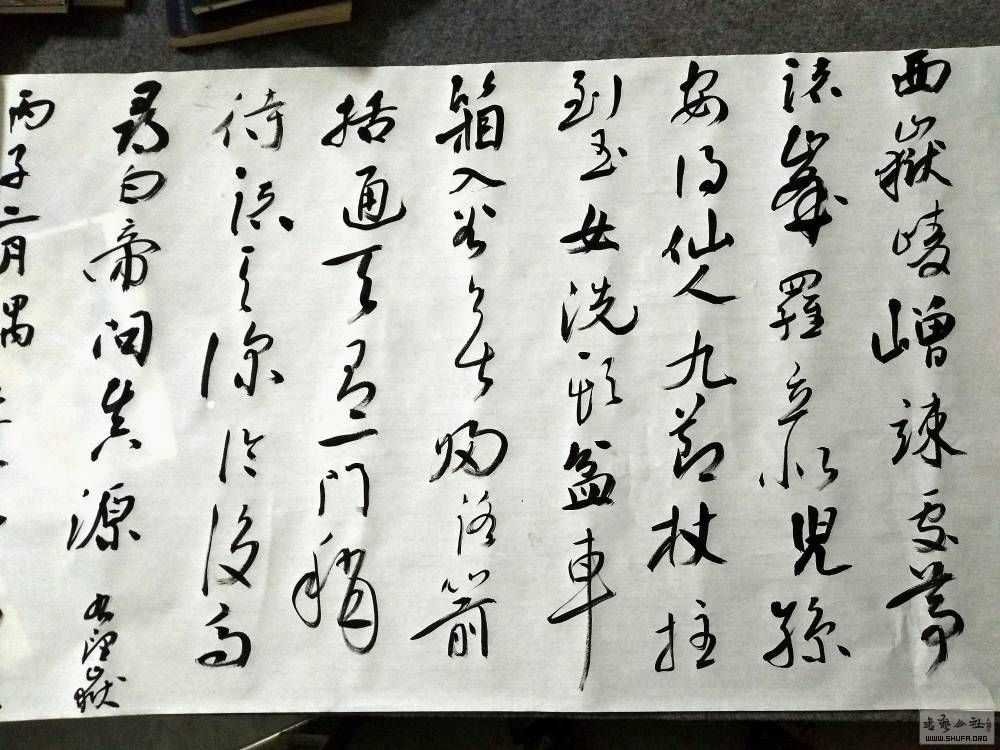 西嶽崚嶒竦處尊
諸峯羅立似兒孫
安得仙人九節杖拄
到玉女洗頭盆車
箱入谷無歸路箭
括通天有一門稍
待秋風涼冷後高
尋白帝問真源 右望嶽
丙子二月
书艺公社
WWW.SHUFA.ORG